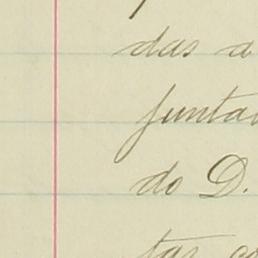 das a
juntar
do D.
tas